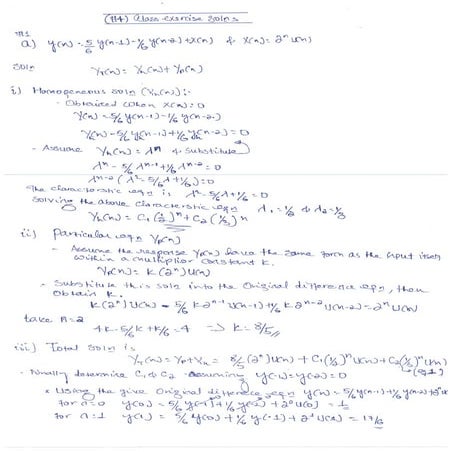 (#4) Class exercise solns
#1
a) y(n) = 5/6 y(n-1) - 1/6 y(n-2) + x(n) & x(n) = 2^n u(n)
Soln Yt(n) = Yh(n) + Yp(n)
i) Homogeneous soln (Yh(n)):-
- Obtained when x(n)=0
Y(n) = 5/6 y(n-1) - 1/6 y(n-2)
Y(n) - 5/6 y(n-1) + 1/6 y(n-2) = 0
- Assume Yh(n) = λ^n & substitute
λ^n - 5/6 λ^n-1 + 1/6 λ^n-2 = 0
λ^n-2 (λ^2 - 5/6 λ + 1/6) = 0
The characteristic eqn is λ^2 - 5/6 λ + 1/6 = 0
Solving the above characterstic eqn λ1 = 1/2 & λ2 = 1/3
Yh(n) = C1(1/2)^n + C2(1/3)^n
ii) Particular eqn Yp(n)
- Assume the response Yp(n) have the same form as the input itself
within a multiplier constant K.
Yp(n) = K(2^n)u(n)
- Substitute this soln into the Original difference eqn, then
obtain K.
K(2^n)u(n) = 5/6 K 2^n-1 u(n-1) + 1/6 K 2^n-2 u(n-2) = 2^n u(n)
take n=2
4K - 5/6 K + K/6 = 4 => K = 8/5 //
iii) Total soln is
Yt(n) = Yp + Yh = 8/5 (2^n)u(n) + C1(1/2)^n u(n) + C2(1/3)^n u(n)
- Finally determine C1 & C2 assuming y(-1) = y(-2) = 0
* Using the give Original difference eqn y(n) = 5/6 y(n-1) + 1/6 y(n-2)
for n=0 y(0) = 5/6 y(-1) + 1/6 y(-2) + 2^0 u(0) = 1
for n=1 y(1) = 5/6 y(0) + 1/6 y(-1) + 2^1 u(1) = 17/6